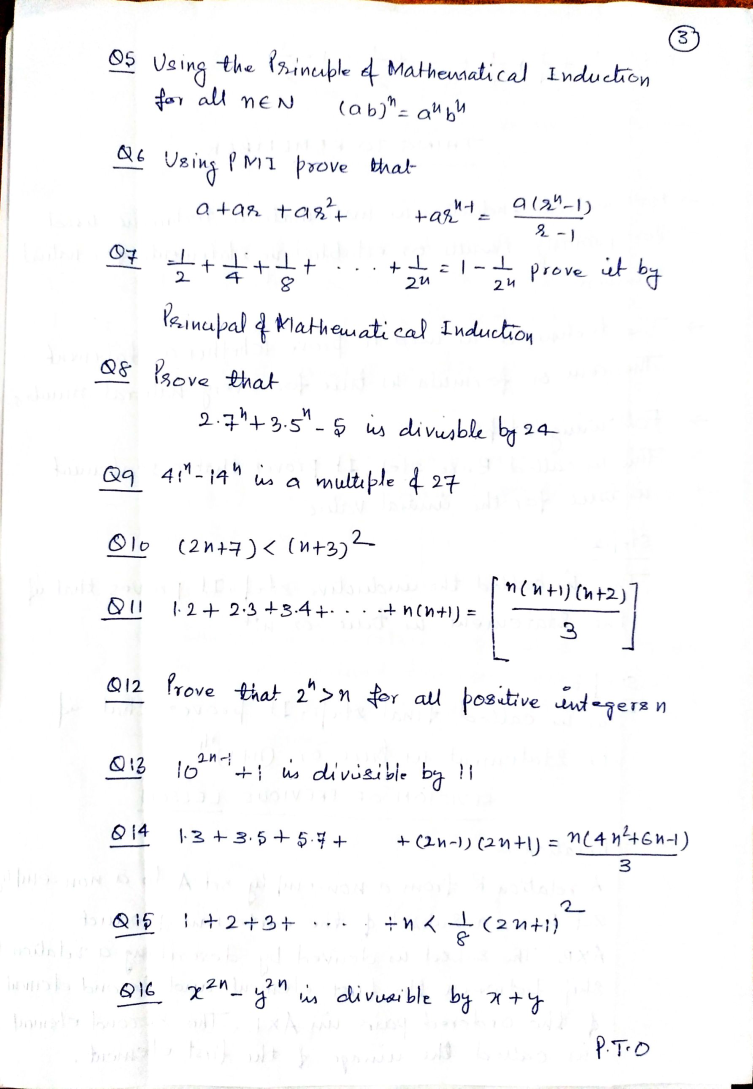 3
Q5 Using the Principle of Mathematical Induction
for all n∈N (ab)ⁿ = aⁿbⁿ
Q6 Using PMI prove that
a + ar + ar² + + arⁿ⁻¹ = a(rⁿ-1)/r-1
Q7 1/2 + 1/4 + 1/8 + ... + 1/2ⁿ = 1 - 1/2ⁿ prove it by
Prinupal of Mathematical Induction
Q8 Prove that
2.7ⁿ + 3.5ⁿ - 5 is divisble by 24
Q9 41ⁿ - 14ⁿ is a multiple of 27
Q10 (2n+7) < (n+3)²
Q11 1.2 + 2.3 + 3.4 + .... + n(n+1) = [n(n+1)(n+2)/3]
Q12 Prove that 2ⁿ > n for all positive integers n
Q13 10²ⁿ⁻¹ + 1 is divisible by 11
Q14 1.3 + 3.5 + 5.7 + + (2n-1)(2n+1) = n(4n²+6n-1)/3
Q15 1 + 2 + 3 + .... + n < 1/8 (2n+1)²
Q16 x²ⁿ - y²ⁿ is divisible by x+y
P.T.O